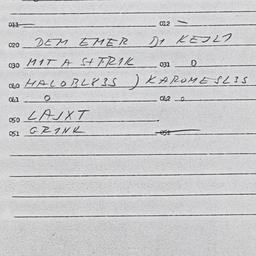 011 012 -
020 DEM EMER DI KEJLI
030 MIT A STRIK 031 0
040 HALOBLX3S ) KAROMESL3S
041 0 042 0
050 LAJXT
051 GRINK 052